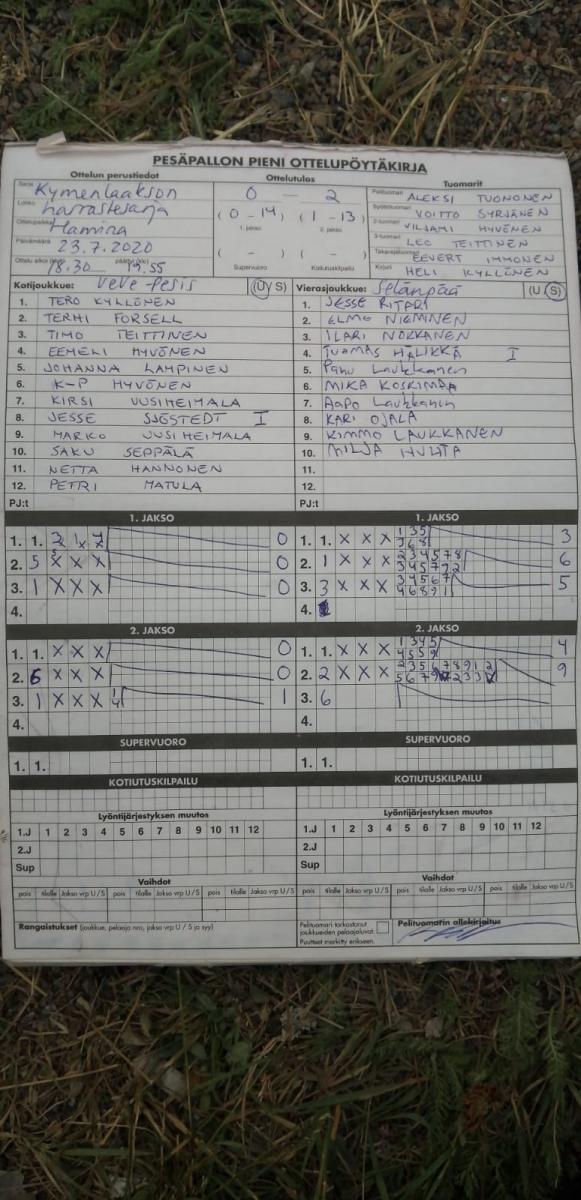 PESÄPALLON PIENI OTTELUPÖYTÄKIRJA
Ottelun perustiedot
Ottelutulos
Tuomarit
Sarja Kymenlaakson
Lohko harrastesarja
Ottelupaikka Hamina
Päivämäärä 23.7.2020
Ottelu alkoi (klo) 18.30 päättyi (klo) 19.55
0 — 2
(0 - 14) (1 - 13)
1. jakso 2. jakso
( - ) ( - )
Supervuoro Kotiutuskilpailu
Pelituomari ALEKSI TUONONEN
Syöttötuomari VOITTO SYRJÄNEN
2-tuomari VILJAMI HYVÖNEN
3-tuomari LEO TEITTINEN
Takarajatuomari EEVERT IMMONEN
Kirjuri HELI KYLLÖNEN
Kotijoukkue: VeVe Pesis (U S)
1. TERO KYLLÖNEN
2. TERHI FORSELL
3. TIMO TEITTINEN
4. EEMELI HYVÖNEN
5. JOHANNA LAMPINEN
6. K-P HYVÖNEN
7. KIRSI UUSIHEIMALA
8. JESSE SJÖSTEDT I
9. MARKO UUSIHEIMALA
10. SAKU SEPPÄLÄ
11. NETTA HANNONEN
12. PETRI MATULA
PJ:t
Vierasjoukkue: Selänpää (U S)
1. JESSE RITARI
2. ELMO NIEMINEN
3. ILARI NOKKANEN
4. TUOMAS HALIKKA I
5. Panu Laukkanen
6. MIKA KOSKIMAA
7. Aapo Laukkanen
8. KARI OJALA
9. KIMMO LAUKKANEN
10. MILJA HUHTA
11.
12.
PJ:t
1. JAKSO
1. 1. 0
2. 5 X X X 0
3. 1 X X X 0
4.
1. JAKSO
1. 1. X X X 135 3
368
2. 1 X X X 234578 6
345792
3. 3 X X X 34567 5
46891
4.
2. JAKSO
1. 1. X X X 0
2. 6 X X X 0
3. 1 X X X 1 1
4
4.
2. JAKSO
1. 1. X X X 1345 4
4559
2. 2 X X X 9
3. 6
4.
SUPERVUORO
1. 1.
SUPERVUORO
1. 1.
KOTIUTUSKILPAILU
KOTIUTUSKILPAILU
Lyöntijärjestyksen muutos
1.J 1 2 3 4 5 6 7 8 9 10 11 12
2.J
Sup
Lyöntijärjestyksen muutos
1.J 1 2 3 4 5 6 7 8 9 10 11 12
2.J
Sup
Vaihdot
pois tilalle Jakso vrp U / S pois tilalle Jakso vrp U / S
Vaihdot
pois tilalle Jakso vrp U / S pois tilalle Jakso vrp U / S
Rangaistukset (joukkue, pelaaja nro, jakso vrp U / S ja syy)
Pelituomari tarkastanut
joukkueiden pelaajaluvat
Puutteet merkitty erikseen.
Pelituomarin allekirjoitus